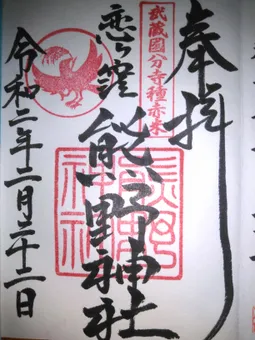 奉拝
武蔵國分寺種赤米
恋ヶ窪
熊野神社
熊野
神社
令和二年二月二十二日